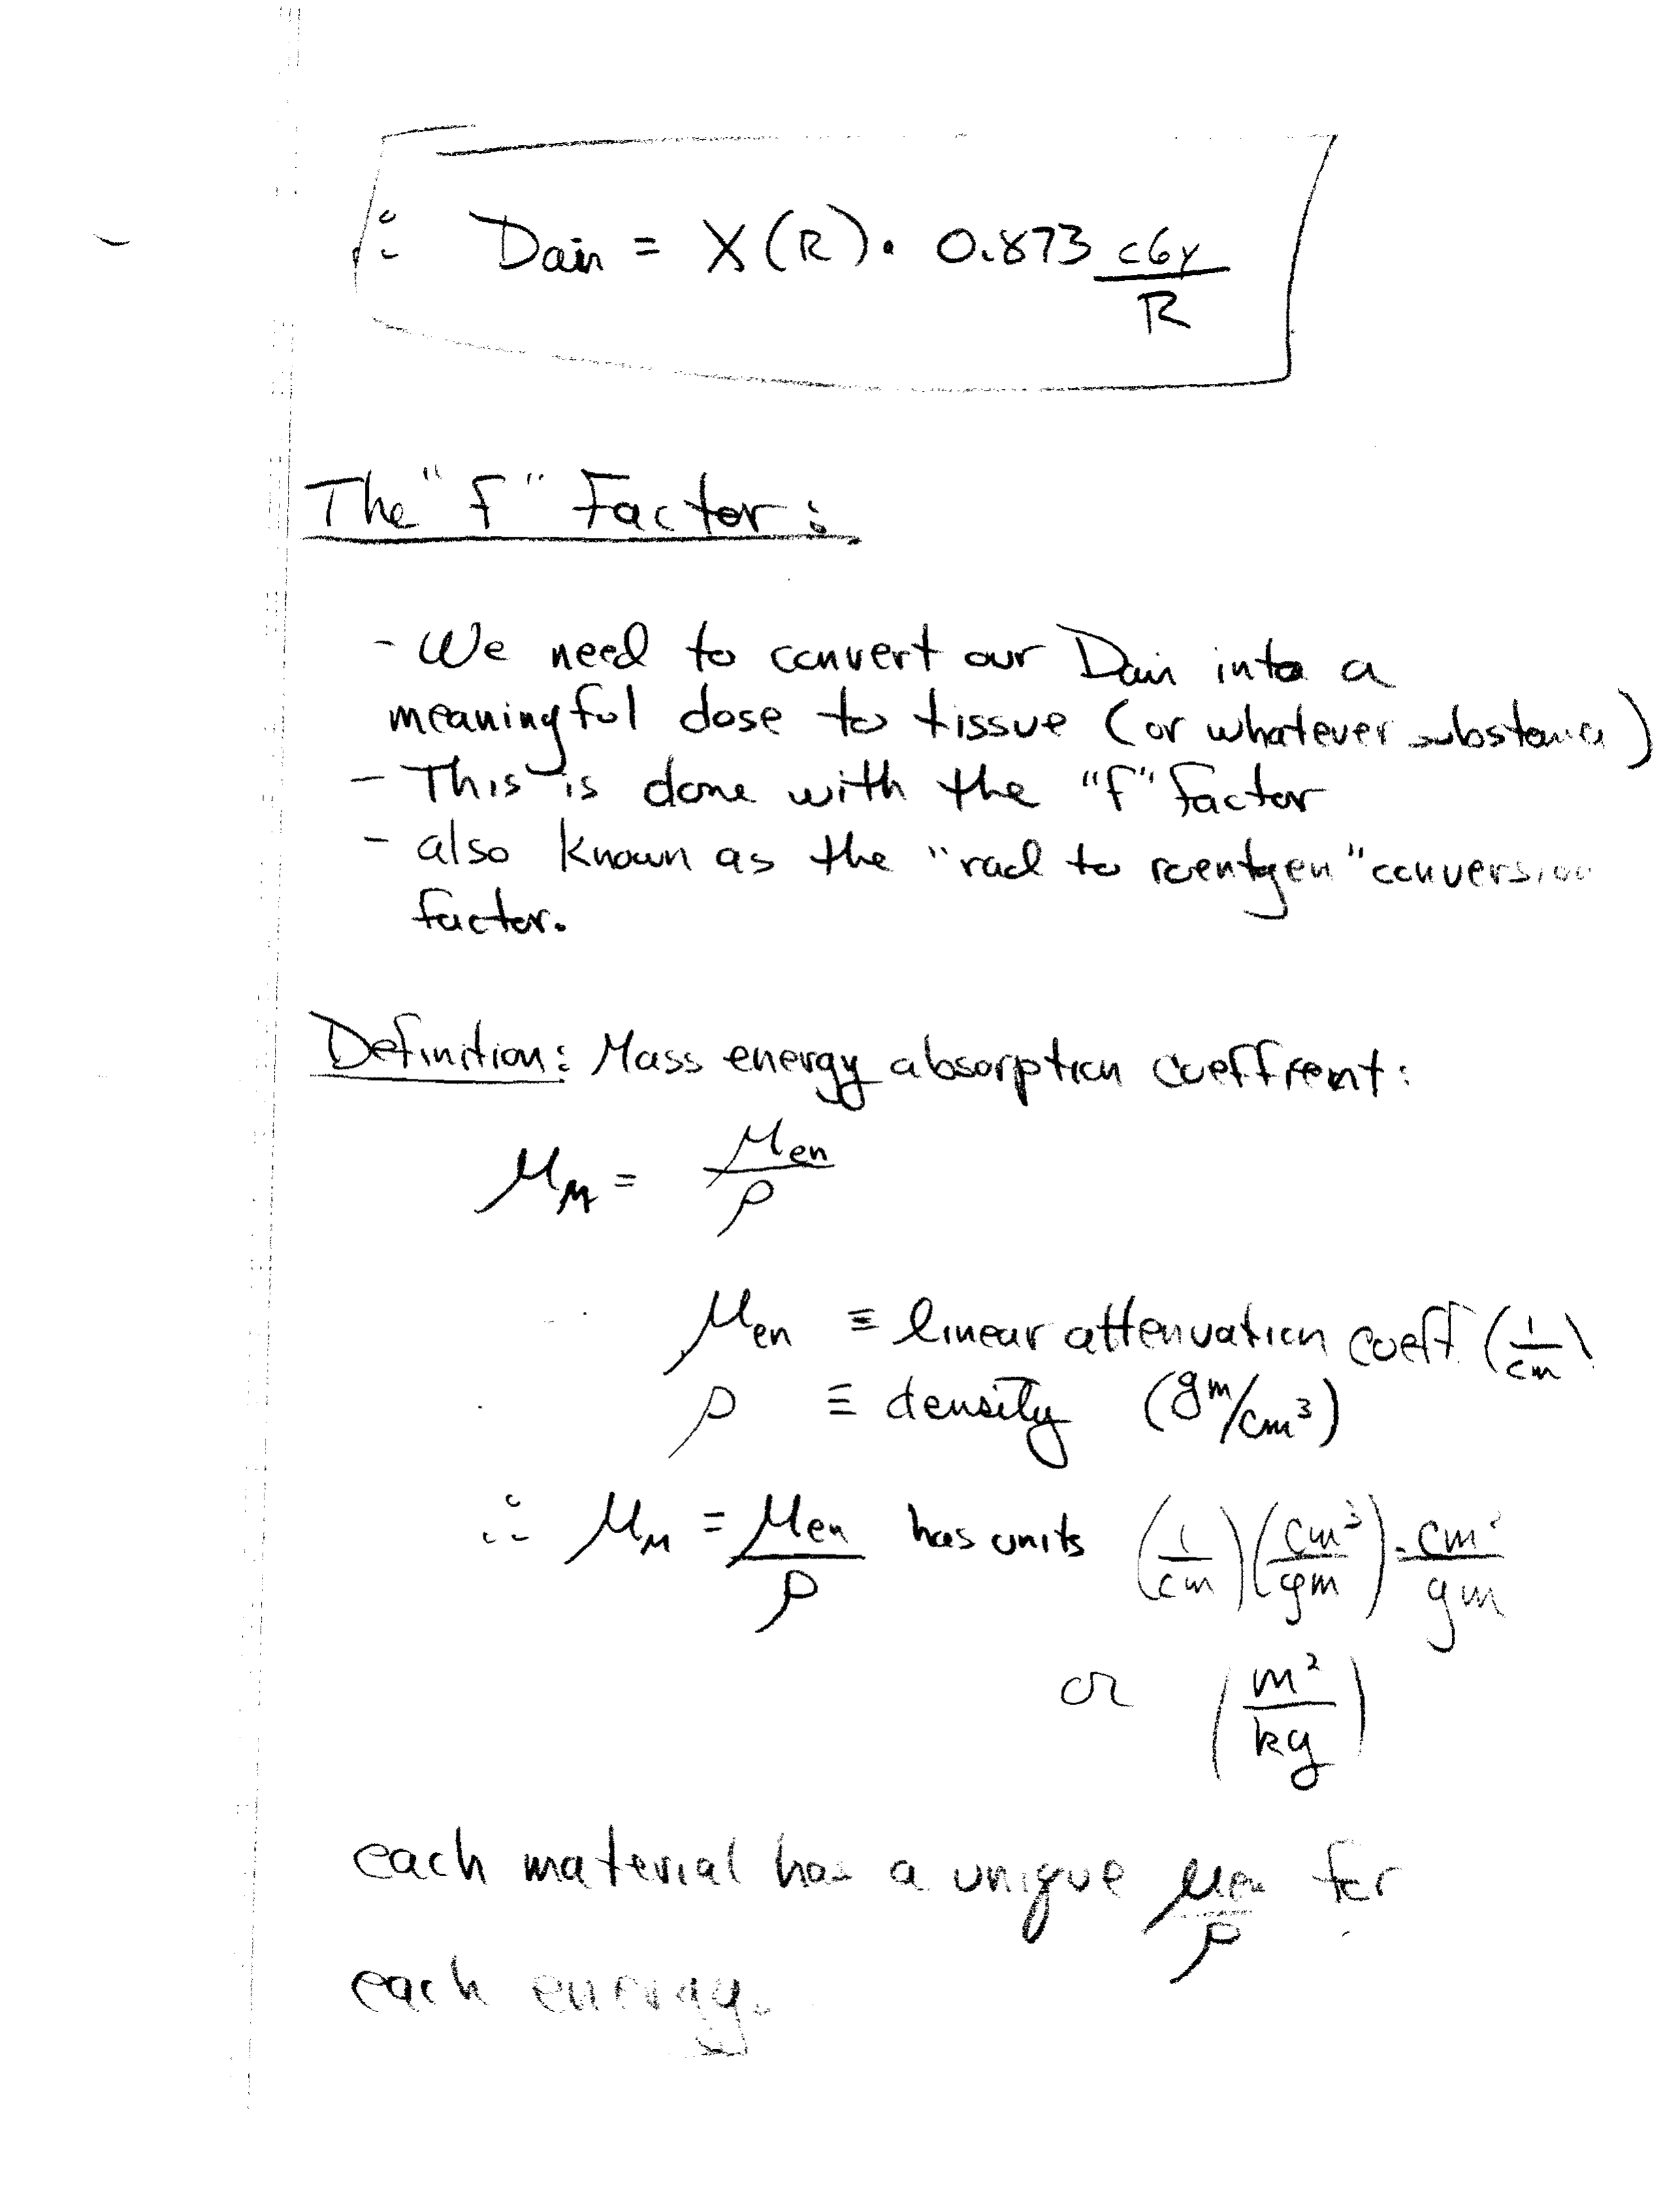 ∴ Dair = X(R). 0.873 cGy/R
The "f" Factor:
- We need to convert our Dair into a
meaningful dose to tissue (or whatever substance)
- This is done with the "f" factor
- also known as the "rad to roentgen" conversion
factor.
Definition: Mass energy absorption coefficient:
μM = μen/ρ
μen ≡ linear attenuation coeff (1/cm)
ρ ≡ density (gm/cm³)
∴ μM = μen/ρ has units (1/cm)(cm³/gm) = cm²/gm
or (m²/kg)
each material has a unique μen/ρ for
each energy.